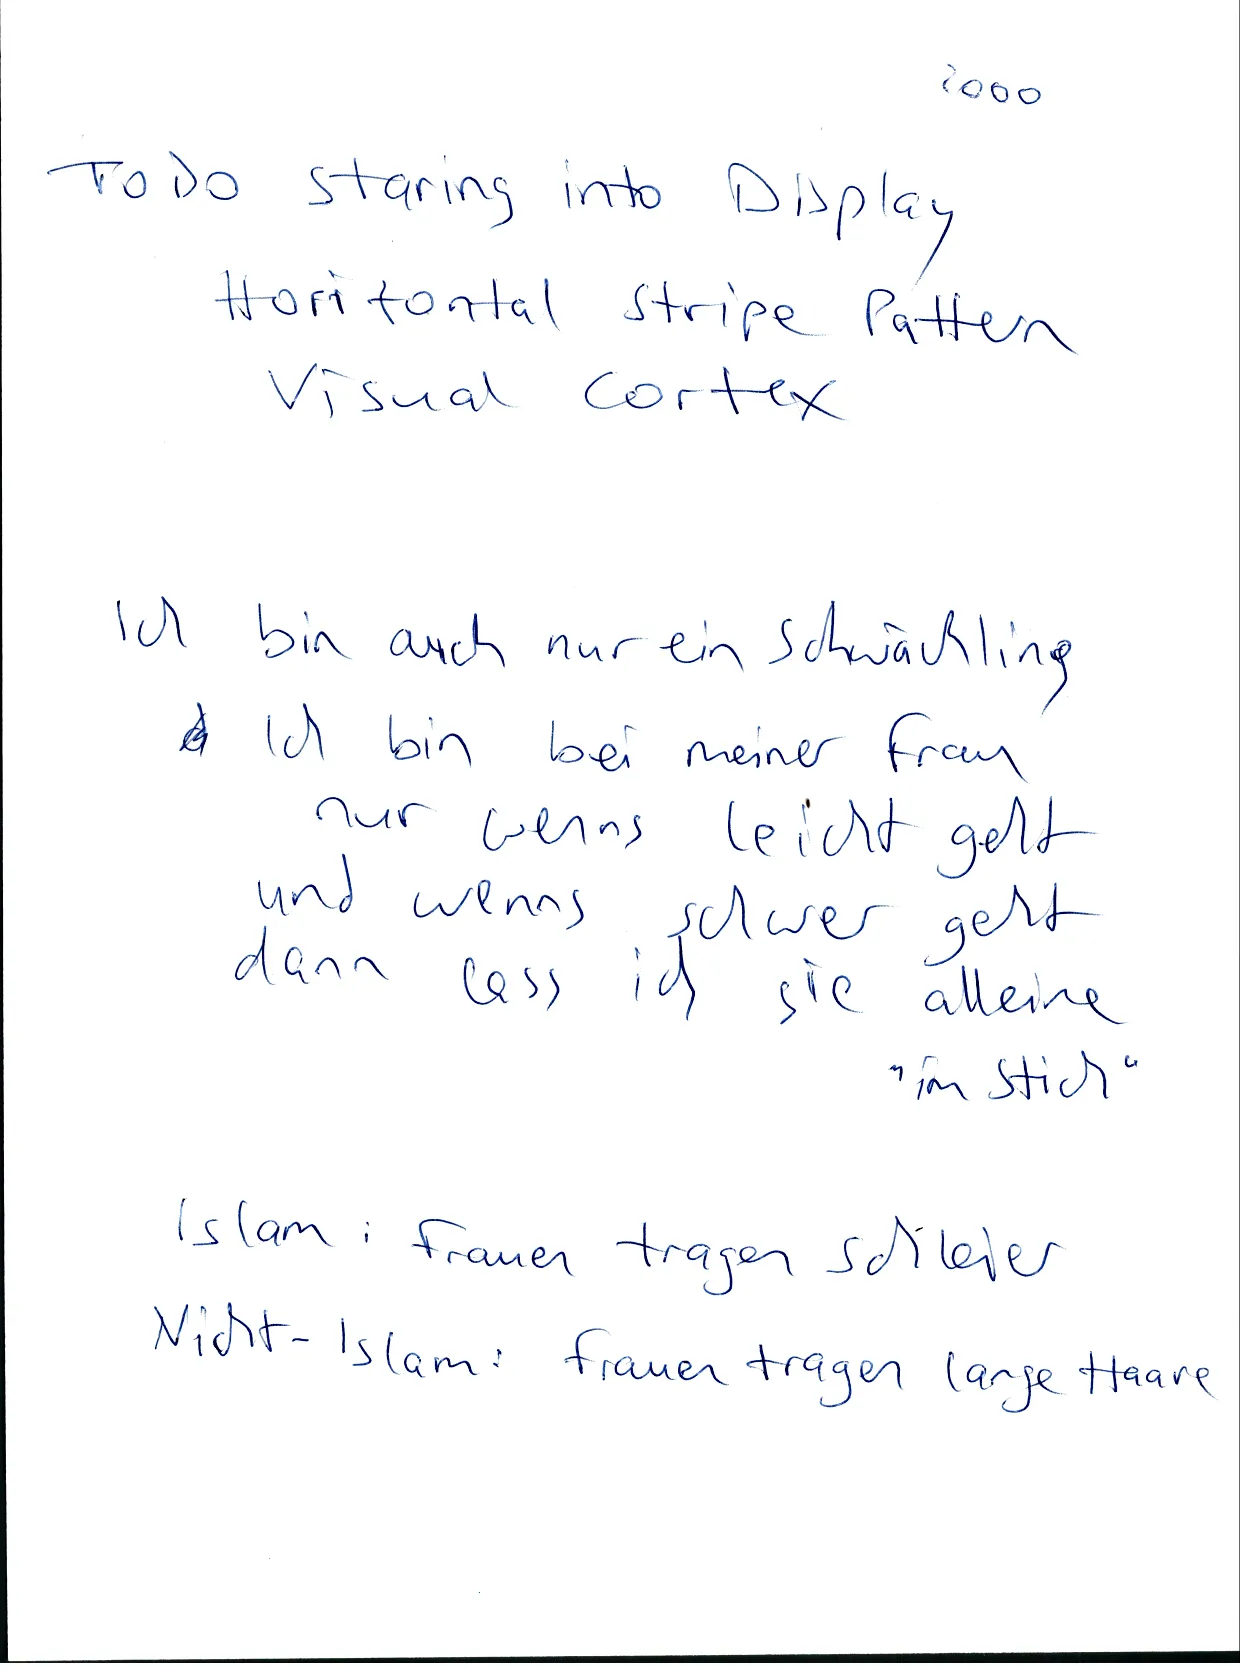 2000
ToDo staring into Display
Horizontal Stripe Patten
Visual Cortex
Ich bin auch nur ein Schwächling
Ich bin bei meiner Frau
nur wenns leicht geht
und wenns schwer geht
dann lass ich sie alleine
"im Stich"
Islam: Frauen tragen Schleier
Nicht-Islam: Frauen tragen lange Haare